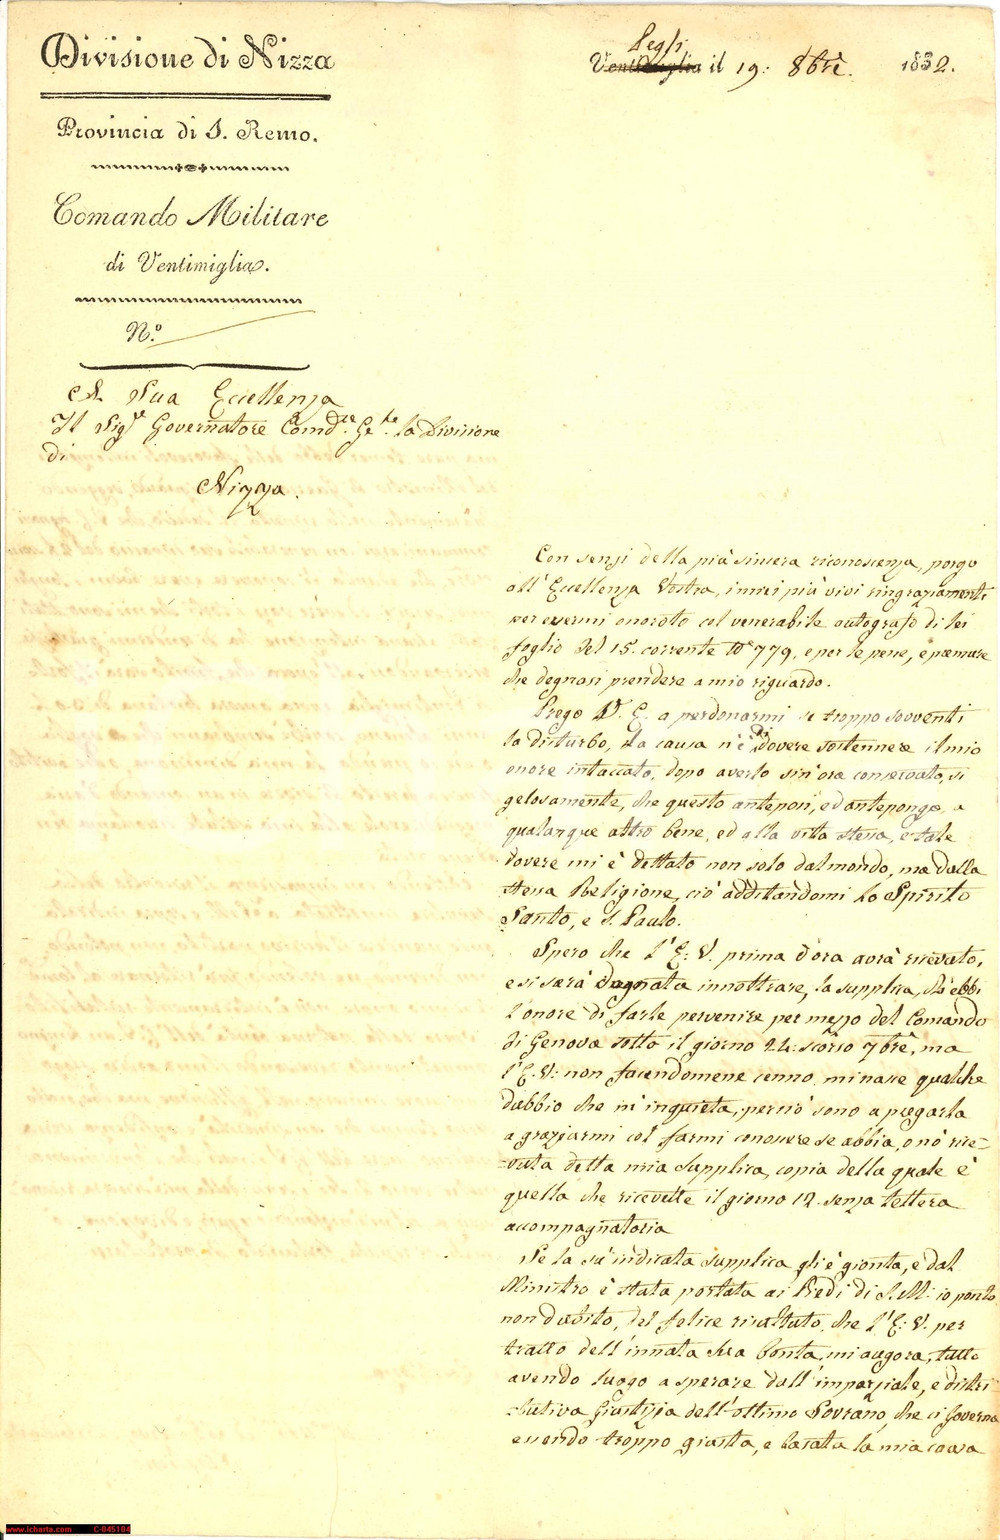 Divisione di Nizza
Provincia di S. Remo.
Comando Militare
di Ventimiglia.
N.°
Pegli
Ventimiglia il 19: 8bre. 1832.
A Sua Eccellenza
Il Sigr Governatore Comdte Gle la Divisione
di
Nizza.
Con sensi della più sincera riconoscenza, porgo
all'Eccellenza Vostra, i miei più vivi ringraziamenti
per avermi onorato col venerabile autografo di lei
foglio del 15. corrente N° 779, e per le pene, e premure
che degnasi prendere a mio riguardo.
Prego V. E. a perdonarmi se troppo sovventi
la disturbo, la causa n'è di dovere sostennere il mio
onore intaccato, dopo averlo sin'ora conservato, sì
gelosamente, che questo anteposi, ed antepongo, a
qualunque altro bene, ed alla vita stessa, e tale
dovere mi è dettato non solo dal mondo, ma dalla
stessa Religione, ciò additandomi lo Spirito
Santo, e S. Paolo.
Spero che l'E: V. prima d'ora avrà ricevuto,
e si sarà degnata innoltrare, la supplica, ch'ebbi
l'onore di farle pervenire per mezzo del Comando
di Genova sotto il giorno 24: scorso 7bre, ma
l'E. V: non facendomene cenno, mi nasce qualche
dubbio che m'inquieta, perciò sono a pregarla
a graziarmi col farmi conoscere se abbia, o nò rice-
-vuta detta mia supplica, copia della quale è
quella che ricevette il giorno 12. senza lettera
accompagnatoria
Se la su'indicata supplica gli è gionta, e dal
Ministro è stata portata ai Piedi di S. M: io ponto
non dubito, del felice risultato, che l'E: V. per
tratto dell'innata sua bontà, mi augora, tutto
avendo luogo a sperare dall'imparziale, e distri
-butiva Giustizia dell'ottimo Sovrano, che ci governa
essendo troppo giusta, e la mia causa
www.icharta.com C-045104